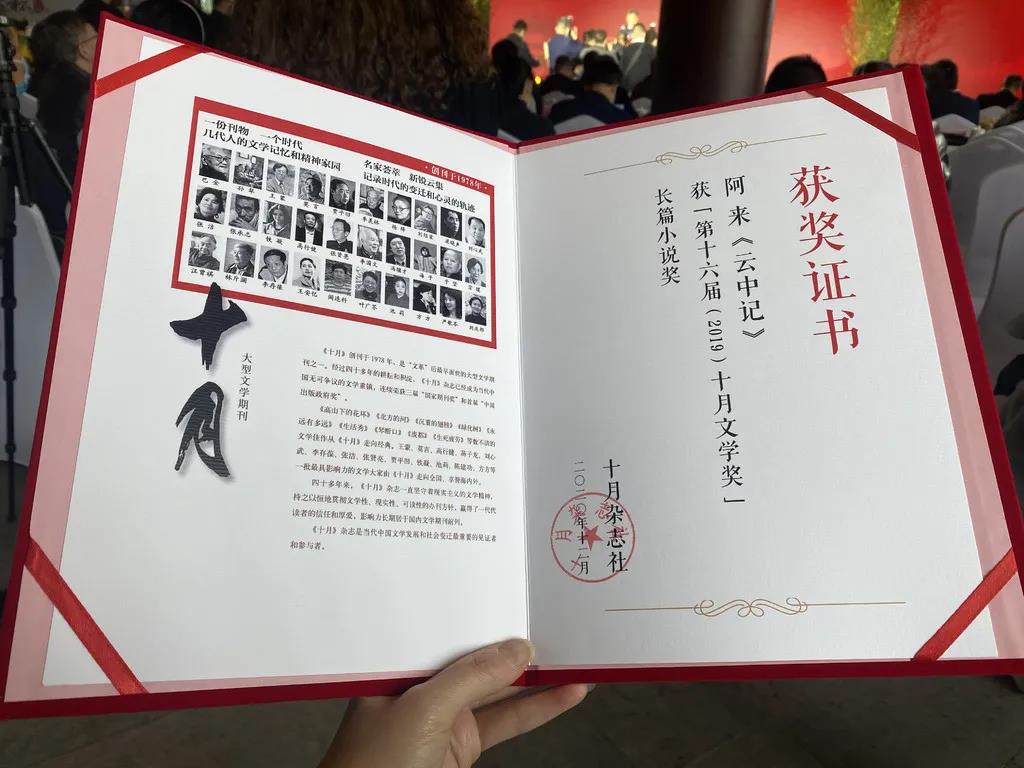 一份刊物 一个时代
几代人的文学记忆和精神家园
·创刊于1978年·
名家荟萃 新锐云集
记录时代的变迁和心灵的轨迹
巴金
孙犁
王蒙
莫言
贾平凹
季羡林
杨绛
刘绍棠
梁晓声
刘心武
张洁
张承志
铁凝
高行健
张贤亮
李国文
冯骥才
海子
于坚
宗璞
汪曾祺
林斤澜
李存葆
王安忆
阎连科
叶广芩
池莉
方方
严歌苓
刘庆邦
十月
大型文学期刊
《十月》创刊于1978年，是“文革”后最早面世的大型文学期
刊之一。经过四十多年的耕耘和积淀，《十月》杂志已经成为当代中
国无可争议的文学重镇，连续荣获三届“国家期刊奖”和首届“中国
出版政府奖”。
《高山下的花环》《北方的河》《沉重的翅膀》《绿化树》《永
远有多远》《生活秀》《琴断口》《废都》《生死疲劳》等数不清的
文学佳作从《十月》走向经典。王蒙、莫言、高行健、蒋子龙、刘心
武、李存葆、张洁、张贤亮、贾平凹、铁凝、池莉、陈建功、方方等
一批最具影响力的文学大家由《十月》走向全国、享誉海内外。
四十多年来，《十月》杂志一直坚守着现实主义的文学精神，
持之以恒地贯彻文学性、现实性、可读性的办刊方针，赢得了一代代
读者的信任和厚爱，影响力长期居于国内文学期刊前列。
《十月》杂志是当代中国文学发展和社会变迁最重要的见证者
和参与者。
获奖证书
阿来《云中记》
获「第十六届（2019）十月文学奖」
长篇小说奖
十月杂志社
年十二月